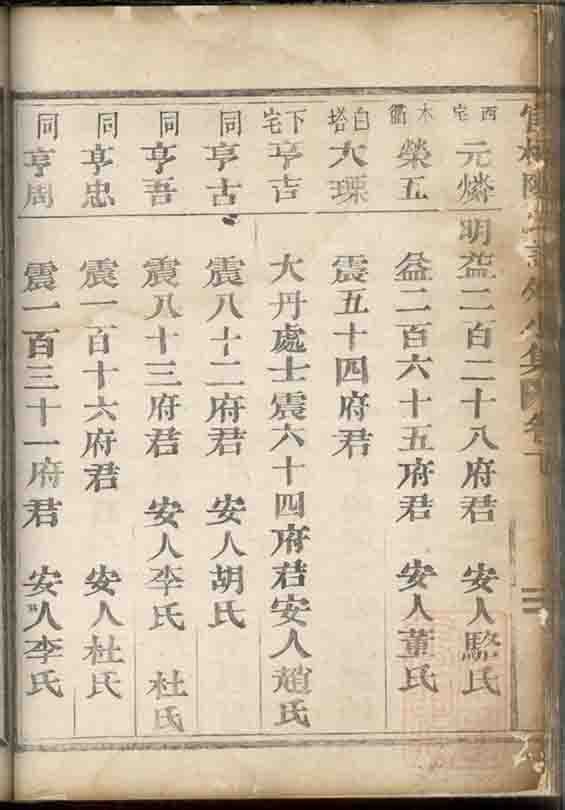 西宅 元燐 明益二百二十八府君 安人駱氏
木衢 榮五 益二百六十五府君 安人董氏
白塔 大𤨏 震五十四府君
下宅 亨吉 大丹處士震六十四府君安人趙氏
同 亨古 震八十二府君 安人胡氏
同 亨吾 震八十三府君 安人李氏 杜氏
同 亨忠 震一百十六府君 安人杜氏
同 亨周 震一百三十一府君 安人李氏